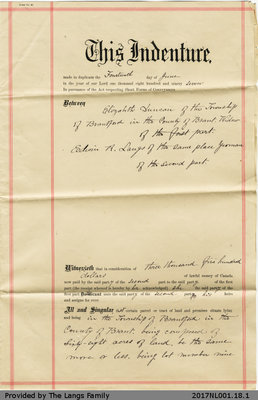 This Indenture,
made in duplicate the Fourteenth day of June
in the year of our Lord one thousand eight hundred and ninety seven
In pursuance of the Act respecting Short Forms of Conveyances
Between
Elizabeth Duncan of the Township
of Brantford in the County of Brant Widow
of the first part
R. Langs of the same place Yeoman
of the second part
Witnesseth that in consideration of three thousand five hundred
dollars of lawful money of Canada
now paid by the said party of the second part to the said party of the first
part (the receipt whereof is hereby by her acknowledged) she the said party of the
first part Doth Grant unto the said party of the second part his heirs
and assigns for ever
All and Singular that certain parcel or tract of land and premises situate lying
and being in the Township of Brantford in the
County of Brant, being composed of
sixty-eight acres of land, be the same
more or less, being lot number nine
Provided by The Langs Family
2017NL001.18.1